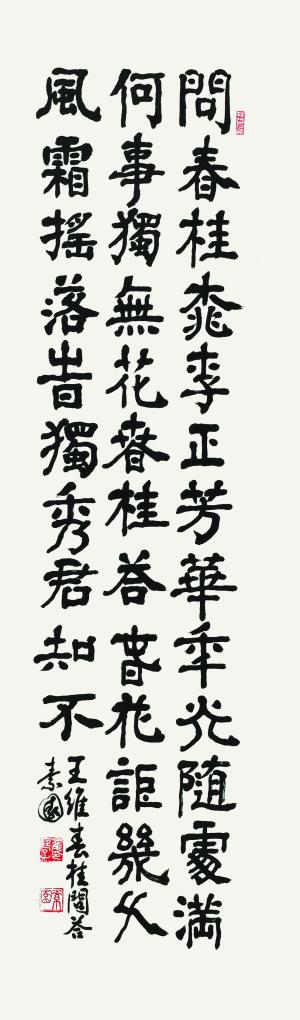 問春桂桃李正芳華年光隨處満
何事獨無花春桂答春花詎幾久
風霜搖落時獨秀君知不
王維春桂問答
素